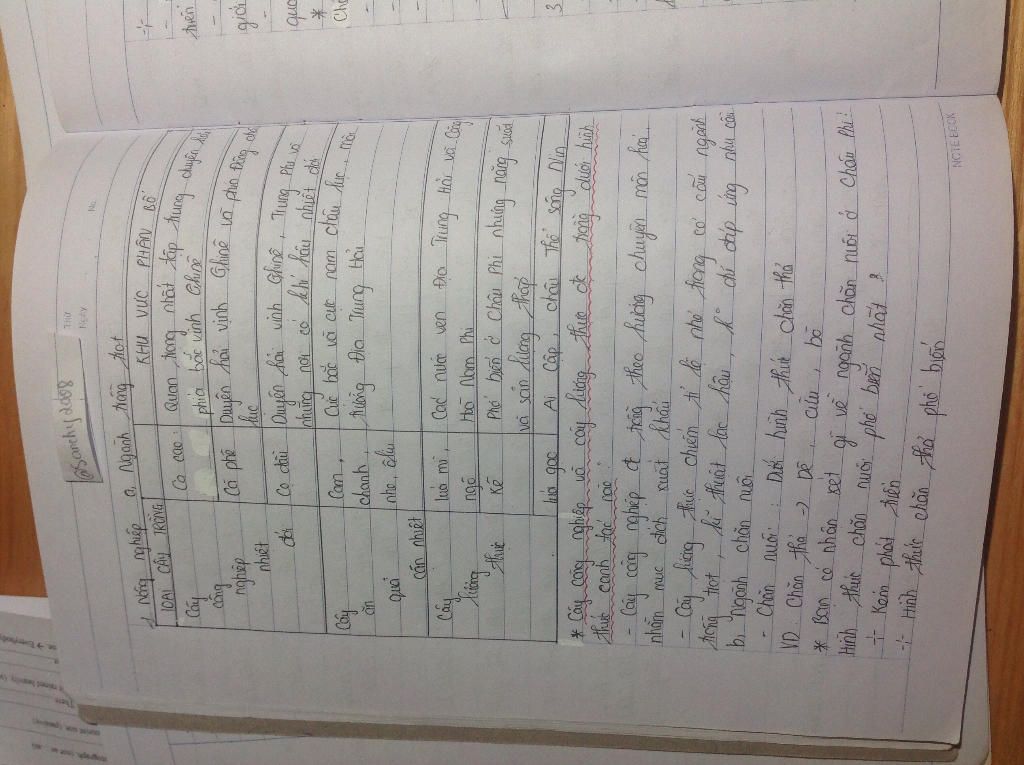 @Sanchy2008
Thứ
Ngày
No.
1, Nông nghiệp a, Ngành trồng trọt
LOẠI CÂY TRỒNG KHU VỰC PHÂN BỐ
Cây công nghiệp nhiệt đới
Ca cao: Quan trọng nhất tập trung duyên hải
phía bắc vịnh Ghinê
Cà phê Duyên hải vịnh Ghinê và phía Đông châu
lục
Cọ dầu Duyên hải vịnh Ghinê, Trung Phi và
những nơi có khí hậu nhiệt đới
Cây ăn quả cận nhiệt
Cam, chanh, nho, ôliu
Cực bắc và cực nam châu lục, môi
trường Địa Trung Hải
Cây lương thực
lúa mì, ngô Các nước ven Địa Trung Hải và Cộng
Hoà Nam Phi
Kê Phổ biến ở Châu Phi nhưng năng suất
và sản lượng thấp
lúa gạo Ai Cập, châu thổ sông Nin
* Cây công nghiệp và cây lương thực đc trồng dưới hình
thức canh tác nào:
- Cây công nghiệp đc trồng theo hướng chuyên môn hoá,
nhằm mục đích xuất khẩu
- Cây lương thực chiếm tỉ lệ nhỏ trong cơ cấu ngành
trồng trọt, kỹ thuật lạc hậu, k chỉ đáp ứng nhu cầu
b. Ngành chăn nuôi
- Chăn nuôi: Dưới hình thức chăn thả
VD: Chăn thả → Dê, cừu, bò
* Bạn có nhận xét gì về ngành chăn nuôi ở Châu Phi?
Hình thức chăn nuôi phổ biến nhất?
+ Kém phát triển
+ Hình thức chăn thả phổ biến
NOTEBOOK